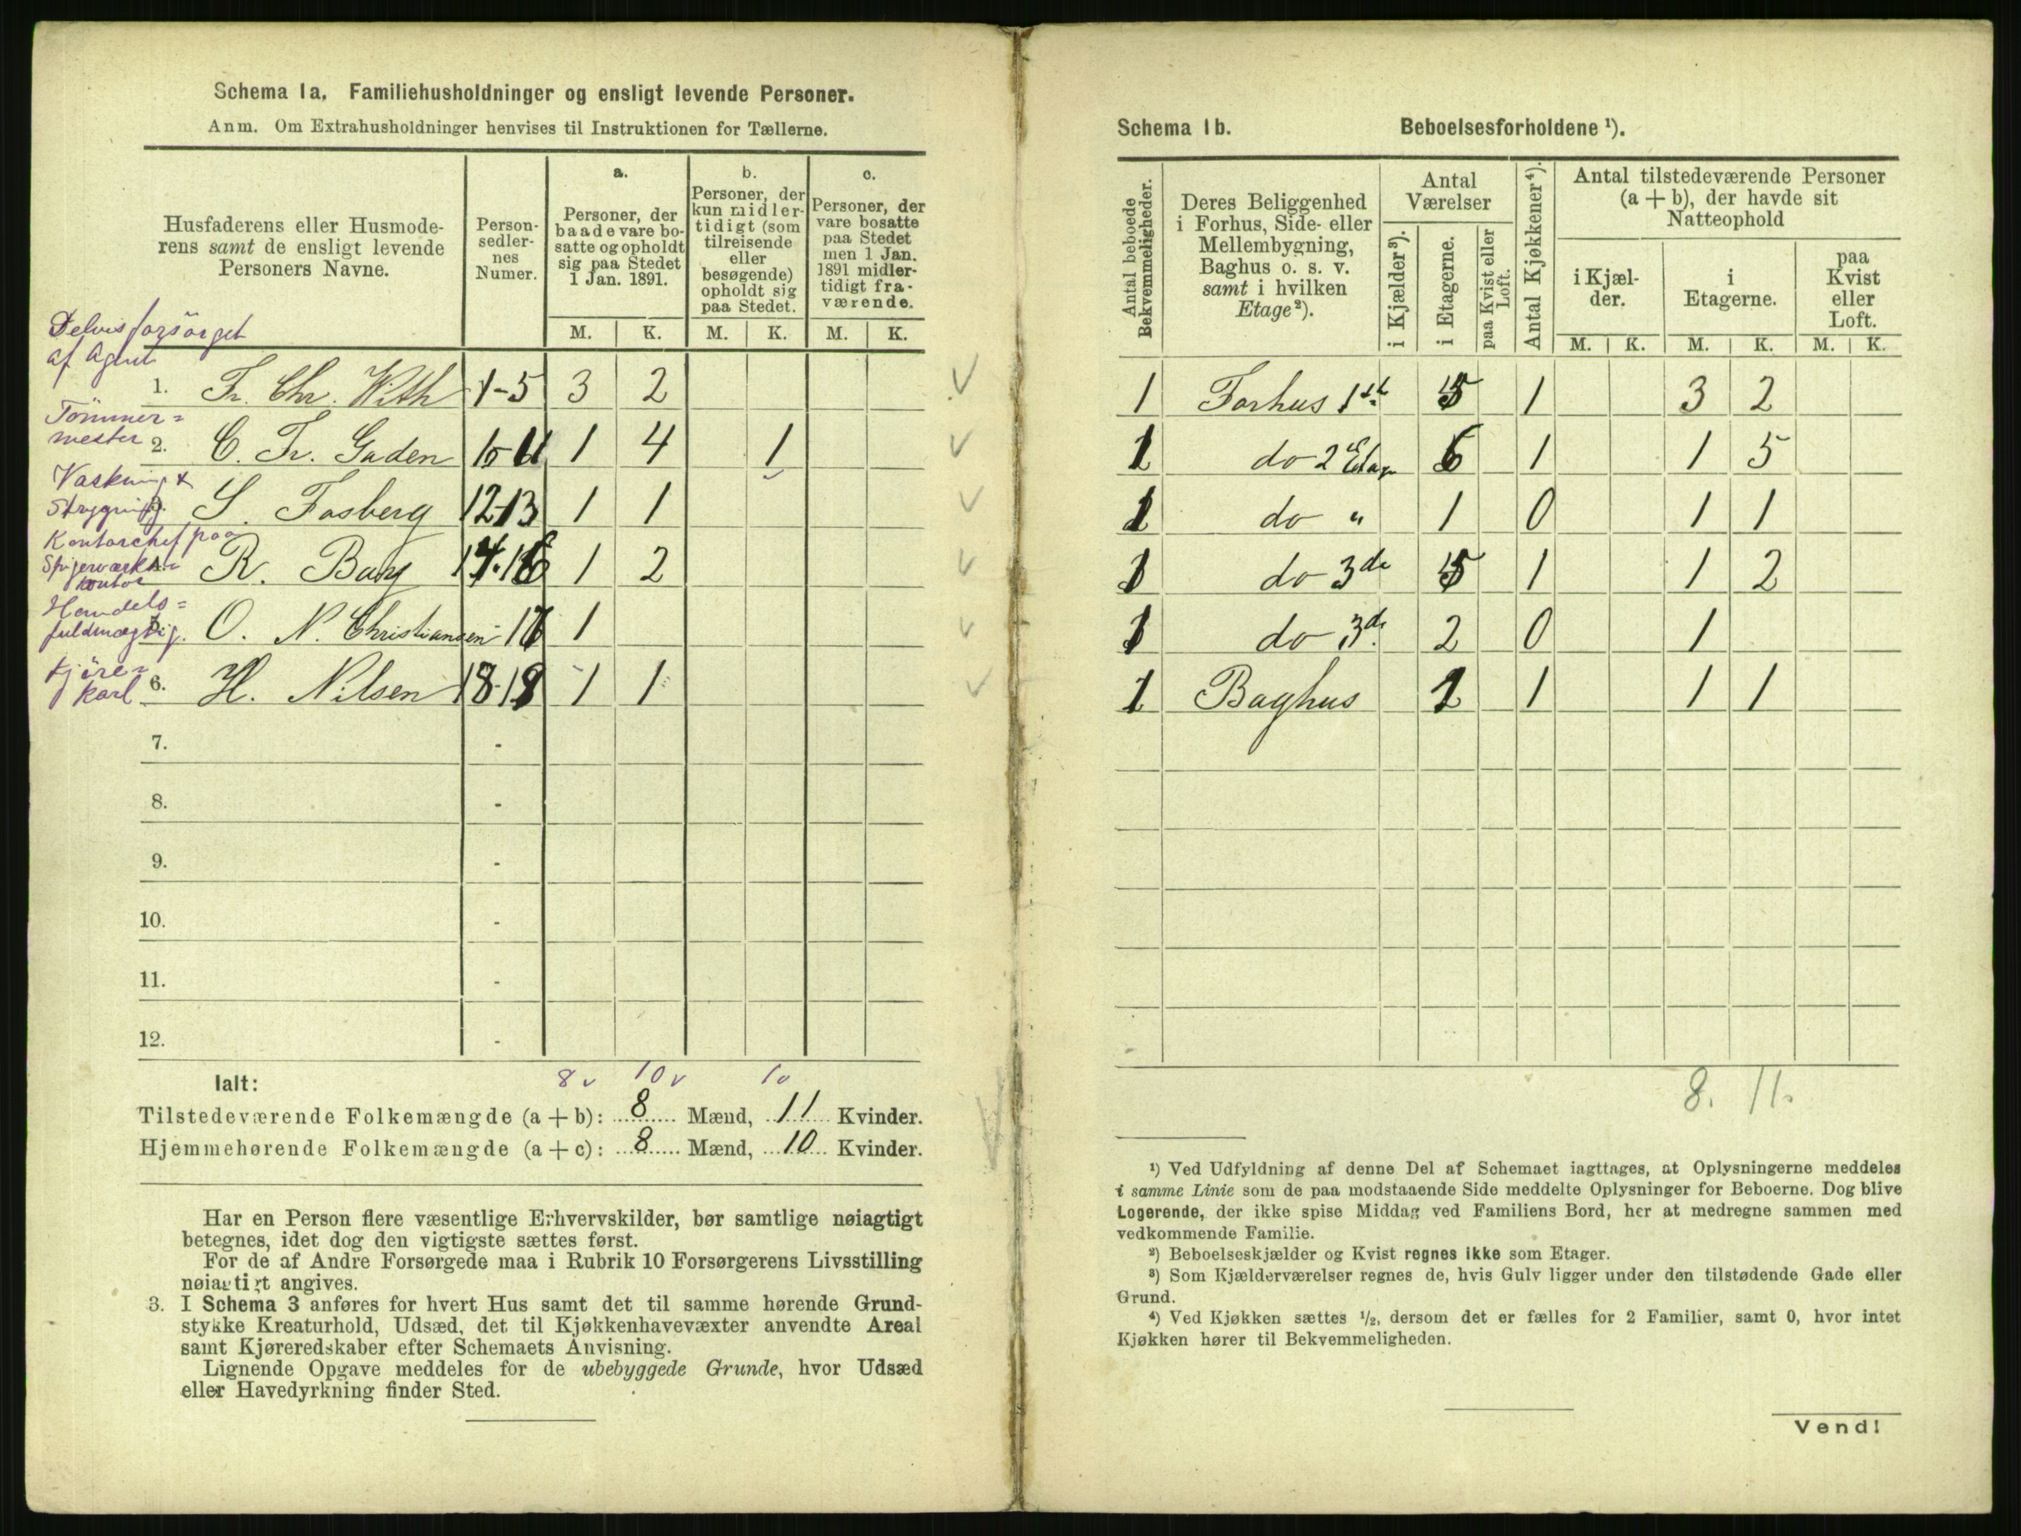 Schema 1a. Familiehusholdninger og ensligt levende Personer.
Anm. Om Extrahusholdninger henvises til Instruktionen for Tællerne.
Husfaderens eller Husmode-
rens samt de ensligt levende
Personers Navne.
Person-
sedler-
nes
Numer.
a.
Personer, der
baade vare bo-
satte og opholdt
sig paa Stedet
1 Jan. 1891.
b.
Personer, der
kun midler-
tidigt (som
tilreisende
eller
besøgende)
opholdt sig
paa Stedet.
c.
Personer, der
vare bosatte
paa Stedet
men 1 Jan.
1891 midler-
tidigt fra-
værende.
M. K. M. K. M. K.
Delvis forsörget
af Agent
1. Fr. Chr. With 1-5 3 2
Tömmer=
mester
2. C. Fr. Gaden 1 4 1
Vaskning &
Strygning
3. S. Fosberg 12-13 1 1
Kontorchef paa
Spigerverks=
kontor
4. R. 14-16 1 2
Handels=
fuldmægtig.
5. O. N. Christiansen 17 1
Kjøre=
karl
6. H. Nilsen 18-19 1 1
7. -
8. -
9. -
10. -
11. -
12. -
Ialt: 8 v 10 v 1 v
Tilstedeværende Folkemængde (a + b): 8 Mænd, 11 Kvinder.
Hjemmehørende Folkemængde (a + c): 8 Mænd, 10 Kvinder.
Har en Person flere væsentlige Erhvervskilder, bør samtlige nøiagtigt
betegnes, idet dog den vigtigste sættes først.
For de af Andre Forsørgede maa i Rubrik 10 Forsørgerens Livsstilling
nøiagtigt angives.
3. I Schema 3 anføres for hvert Hus samt det til samme hørende Grund-
stykke Kreaturhold, Udsæd, det til Kjøkkenhavevæxter anvendte Areal
samt Kjøreredskaber efter Schemaets Anvisning.
Lignende Opgave meddeles for de ubebyggede Grunde, hvor Udsæd
eller Havedyrkning finder Sted.
Schema 1b. Beboelsesforholdene ¹).
Antal beboede
Bekvemmeligheder.
Deres Beliggenhed
i Forhus, Side- eller
Mellembygning,
Baghus o. s. v.
samt i hvilken
Etage²).
Antal
Værelser
i Kjælder³).
i Etagerne.
paa Kvist eller
Loft.
Antal Kjøkkener⁴).
Antal tilstedeværende Personer
(a + b), der havde sit
Natteophold
i Kjæl-
der.
i
Etagerne.
paa
Kvist
eller
Loft.
M. K. M. K. M. K.
1 Forhus 1ste 5 1 3 2
1 do 2 Etage 6 1 1 5
1 do " 1 0 1 1
1 do 3de 5 1 1 2
1 do 3de 2 0 1
1 Baghus 2 1 1 1
8. 11.
¹) Ved Udfyldning af denne Del af Schemaet iagttages, at Oplysningerne meddeles
i samme Linie som de paa modstaaende Side meddelte Oplysninger for Beboerne. Dog blive
Logerende, der ikke spise Middag ved Familiens Bord, her at medregne sammen med
vedkommende Familie.
²) Beboelseskjælder og Kvist regnes ikke som Etager.
³) Som Kjælderværelser regnes de, hvis Gulv ligger under den tilstødende Gade eller
Grund.
⁴) Ved Kjøkken sættes ½, dersom det er fælles for 2 Familier, samt 0, hvor intet
Kjøkken hører til Bekvemmeligheden.
Vend!